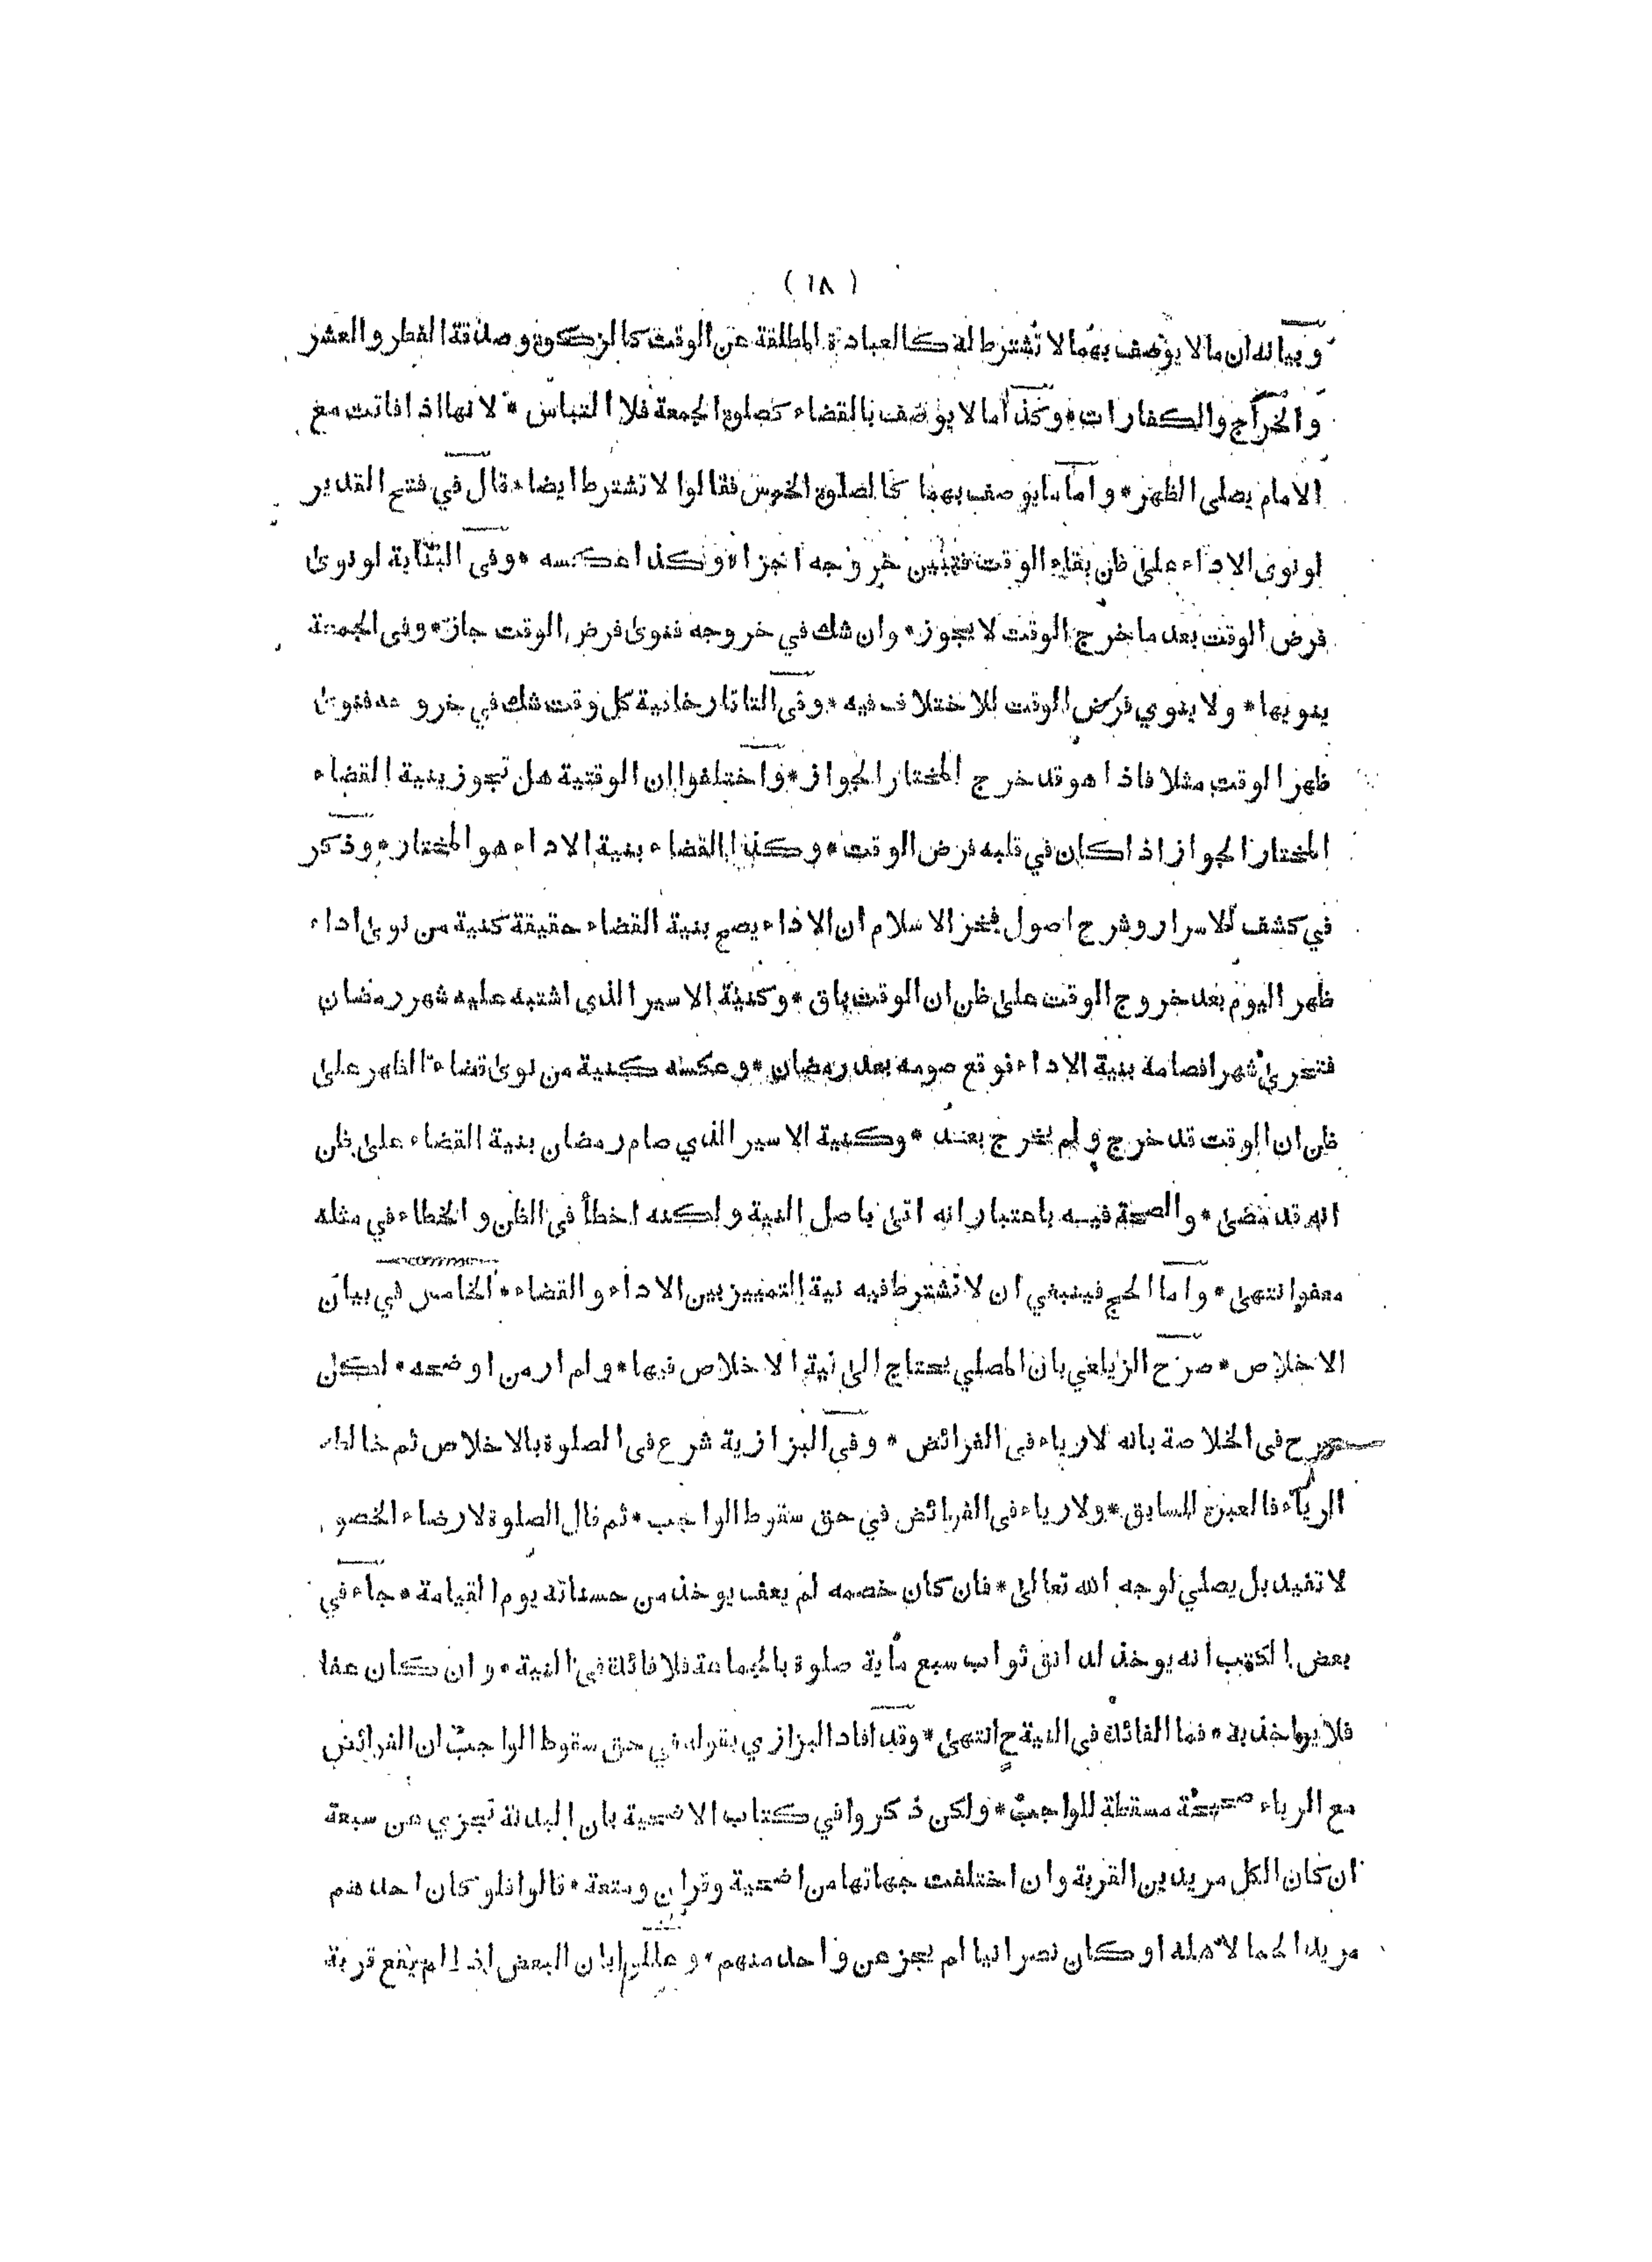 ( ١٨ )
وبيانه ان ما لا يوصف بهما لا تشترط له كالعبادة المطلقة عن الوقت كالزكوة وصدقة الفطر والعشر
والخراج والكفارات * وكذا ما لا يوصف بالقضاء كصلوة الجمعة فلا التباس * لانها اذا فاتت مع
الامام يصلى الظهر * واما ما يوصف بهما كالصلوة الخمس فقالوا لا تشترط ايضا * قال في فتح القدير
لو نوى الاداء على ظن بقاء الوقت فتبين خروجه اجزاه وكذا عكسه * وفى البناية لو نوى
فرض الوقت بعد ما خرج الوقت لا يجوز * وان شك في خروجه فنوى فرض الوقت جاز * وفى الجمعة
ينويها * ولا ينوي فرض الوقت للاختلاف فيه * وفى التاتارخانية كل وقت شك في خروجه فنوى
ظهر الوقت مثلا فاذا هو قد خرج المختار الجواز * واختلفوا ان الوقتية هل تجوز بنية القضاء
المختار الجواز اذا كان في قلبه فرض الوقت * وكذا القضاء بنية الاداء هو المختار * وذكر
في كشف الاسرار وشرح اصول فخر الاسلام ان الاداء يصح بنية القضاء حقيقة كنية من نوى اداء
ظهر اليوم بعد خروج الوقت على ظن ان الوقت باق * وكنية الاسير الذي اشتبه عليه شهر رمضان
فتحرى شهرا فصامه بنية الاداء فوقع صومه بعد رمضان * وعكسه كنية من نوى قضاء الظهر على
ظن ان الوقت قد خرج ولم يخرج بعد * وكنية الاسير الذي صام رمضان بنية القضاء على ظن
انه قد مضى * والصحة فيه باعتبار انه اتى باصل النية ولكنه اخطأ فى الظن والخطاء في مثله
معفو انتهى * واما الحج فينبغي ان لا تشترط فيه نية التمييز بين الاداء والقضاء * الخامس في بيان
الاخلاص * صرح الزيلعي بان المصلي يحتاج الى نية الاخلاص فيها * ولم ار من اوضحه * لكن
صرح فى الخلاصة بانه لا رياء فى الفرائض * وفى البزازية شرع فى الصلوة بالاخلاص ثم خالطه
الرياء فالعبرة للسابق * ولا رياء فى الفرائض في حق سقوط الواجب * ثم قال الصلوة لارضاء الخصو
لا تفيد بل يصلي لوجه الله تعالى * فان كان خصمه لم يعف يوخذ من حسناته يوم القيامة * جاء في
بعض الكتب انه يوخذ لدانق ثواب سبع مأية صلوة بالجماعة فلا فائدة فى النية * وان كان عفا
فلا يواخذ به * فما الفائدة فى النية ح انتهى * وقد افاد البزازي بقوله في حق سقوط الواجب ان الفرائض
مع الرياء صحيحة مسقطة للواجب * ولكن ذكروا في كتاب الاضحية بان البدنة تجزي عن سبعة
ان كان الكل مريدين القربة وان اختلفت جهاتها من اضحية وقران ومتعة * قالوا فلو كان احدهم
مريدا لحما لاهله او كان نصرانيا لم يجز عن واحد منهم * وعللوا بان البعض اذا لم يقع قربة